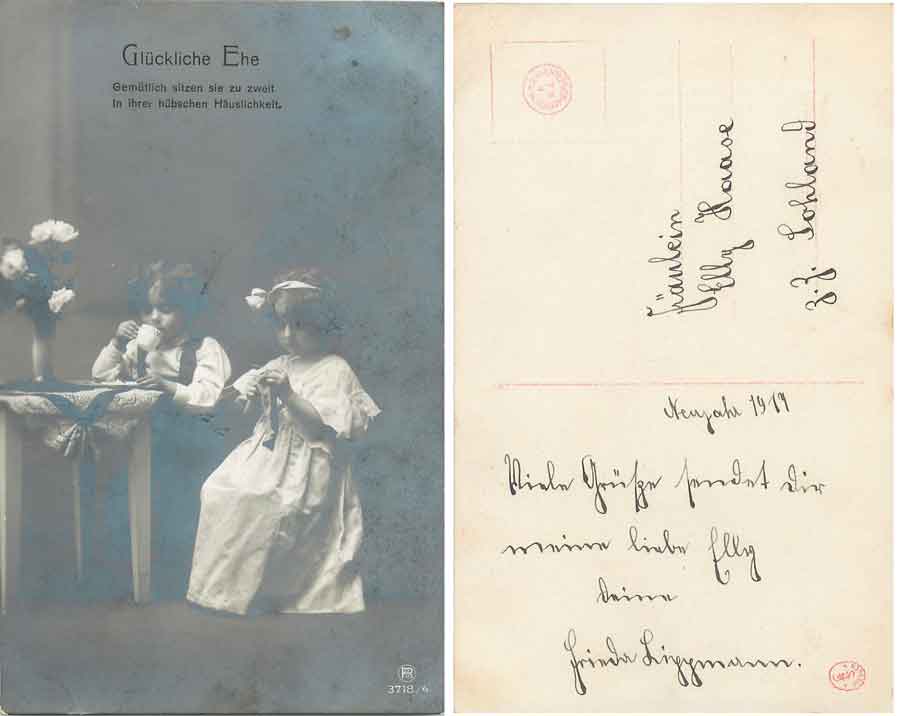 Glückliche Ehe
Gemütlich sitzen sie zu zweit
In ihrer hübschen Häuslichkeit.
3718/4
Fräulein
Elly Haase
z. Z. Sohland
Neujahr 1917
Viele Grüße sendet Dir
meine liebe Elly
Deine
Frieda Lippmann.